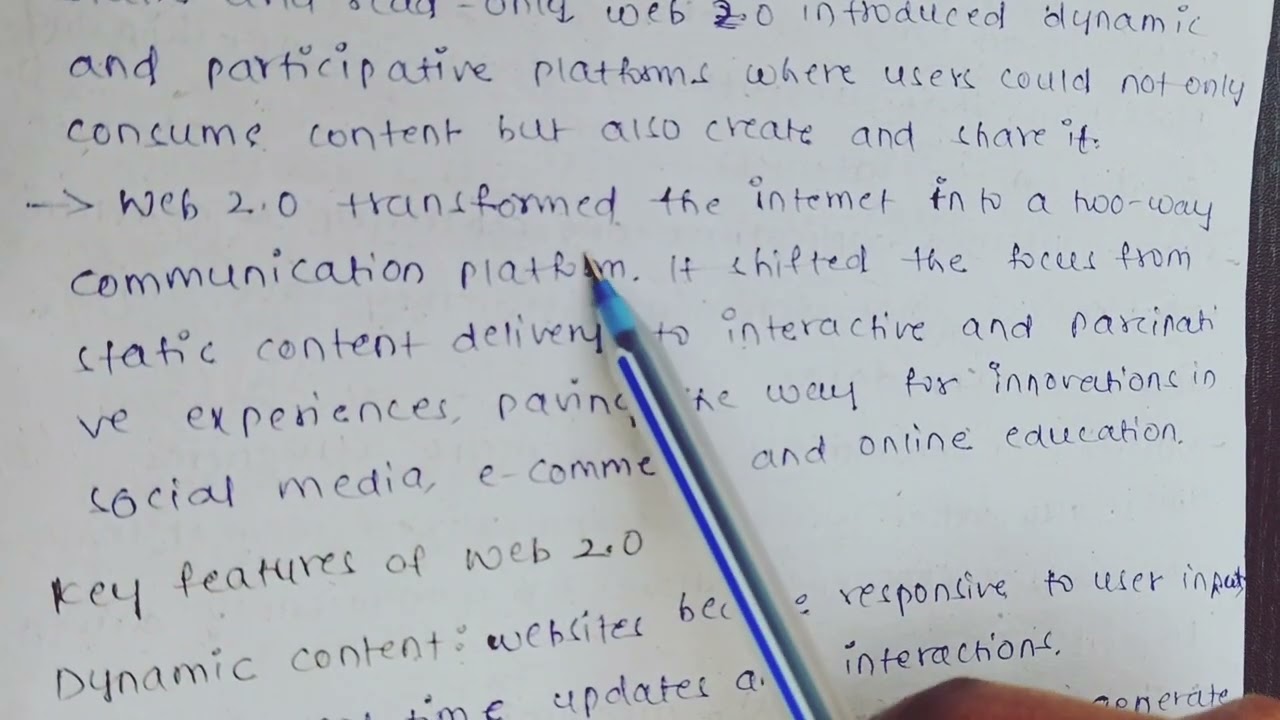 and read-only web 2.0 introduced dynamic
and participative platforms where users could not only
consums content but also create and share it.
-> Web 2.0 transformed the internet into a two-way
communication platform. It shifted the focus from
static content delivery to interactive and parcinati
ve experiences, paving the way for innovations in
social media, e-comme and online education.
Key features of Web 2.0
Dynamic content: websites bec e responsive to user input
time updates a interactions.
generate